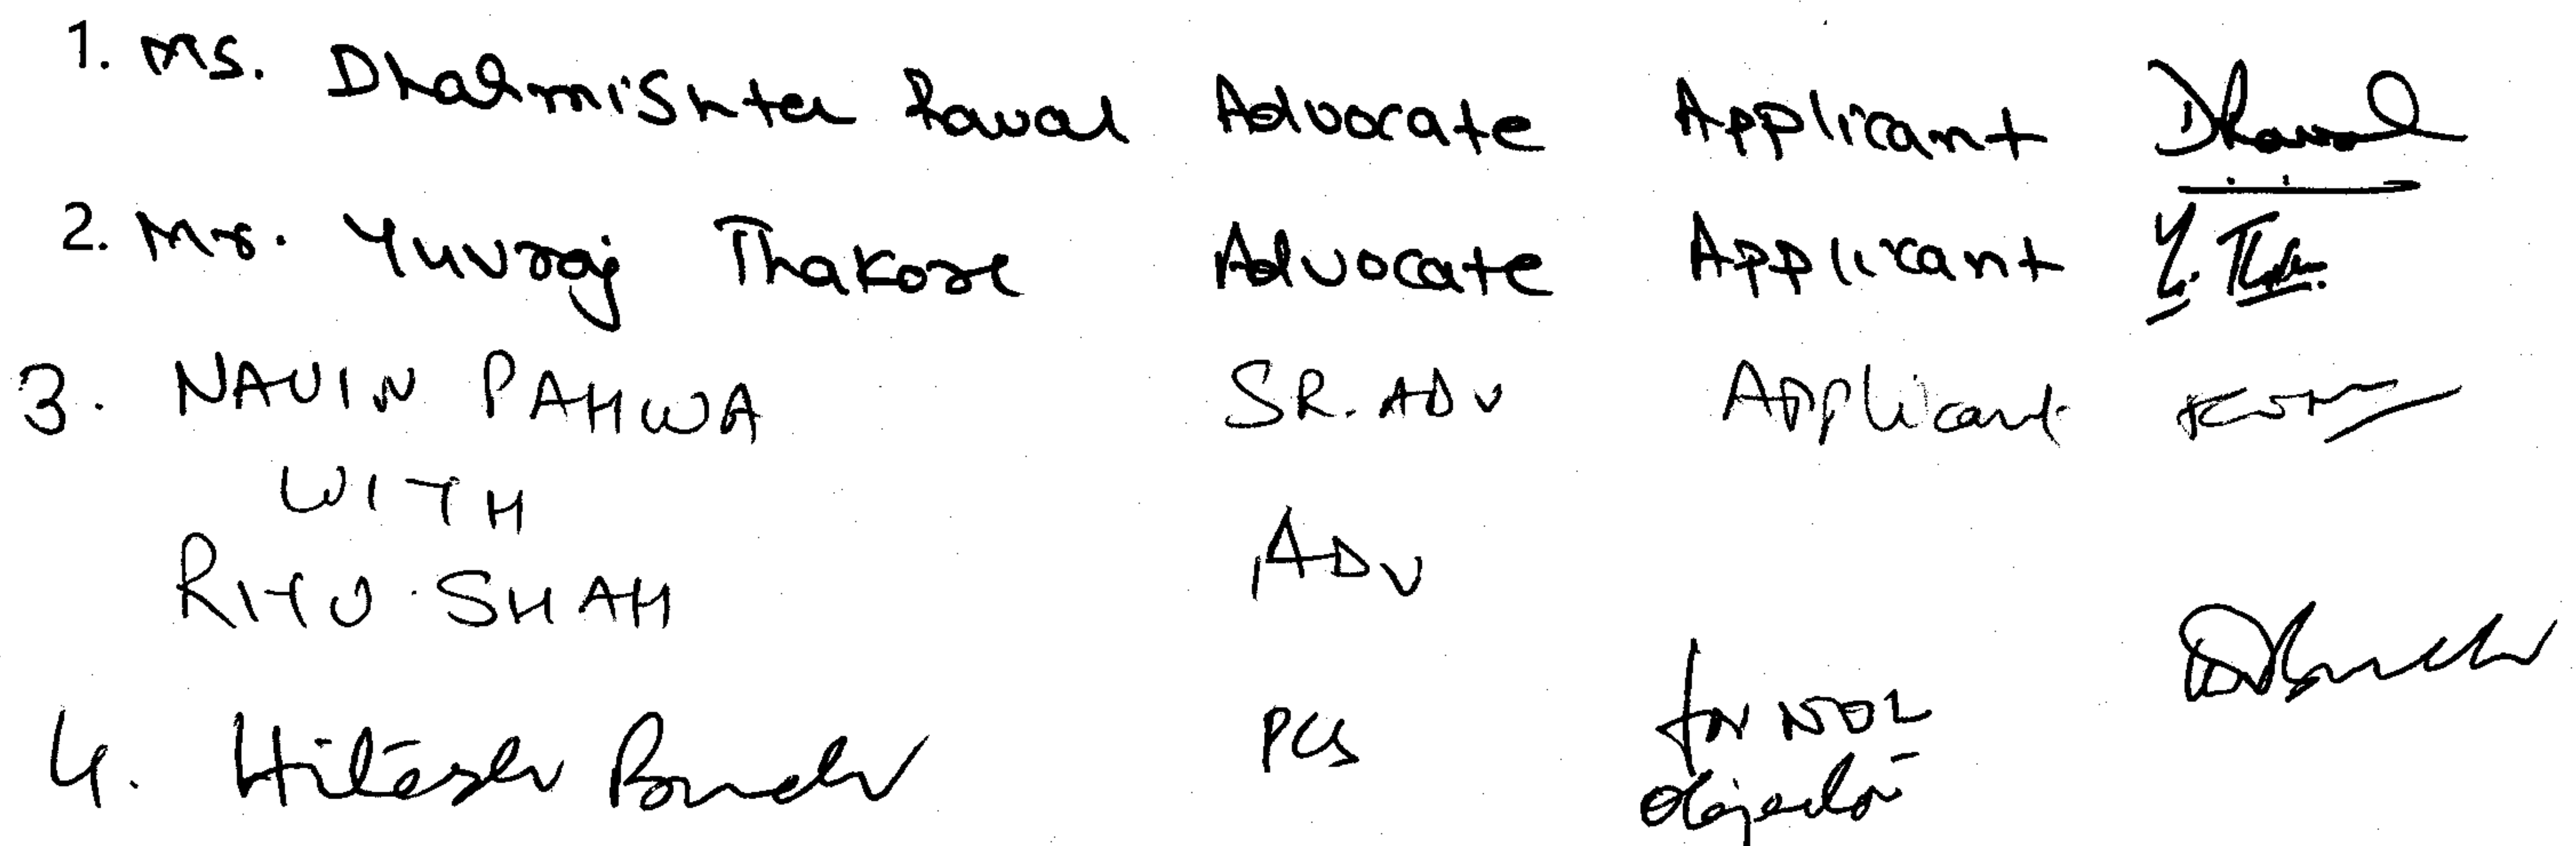 1. Ms. Dharmishta Raval Advocate Applicant DRaval
2. Mr. Yuvraj Thakore Advocate Applicant
3. NAVIN PAHWA SR. ADV Applicant
WITH
RITU SHAH ADV
4. Hitesh Buch PCS for
objector